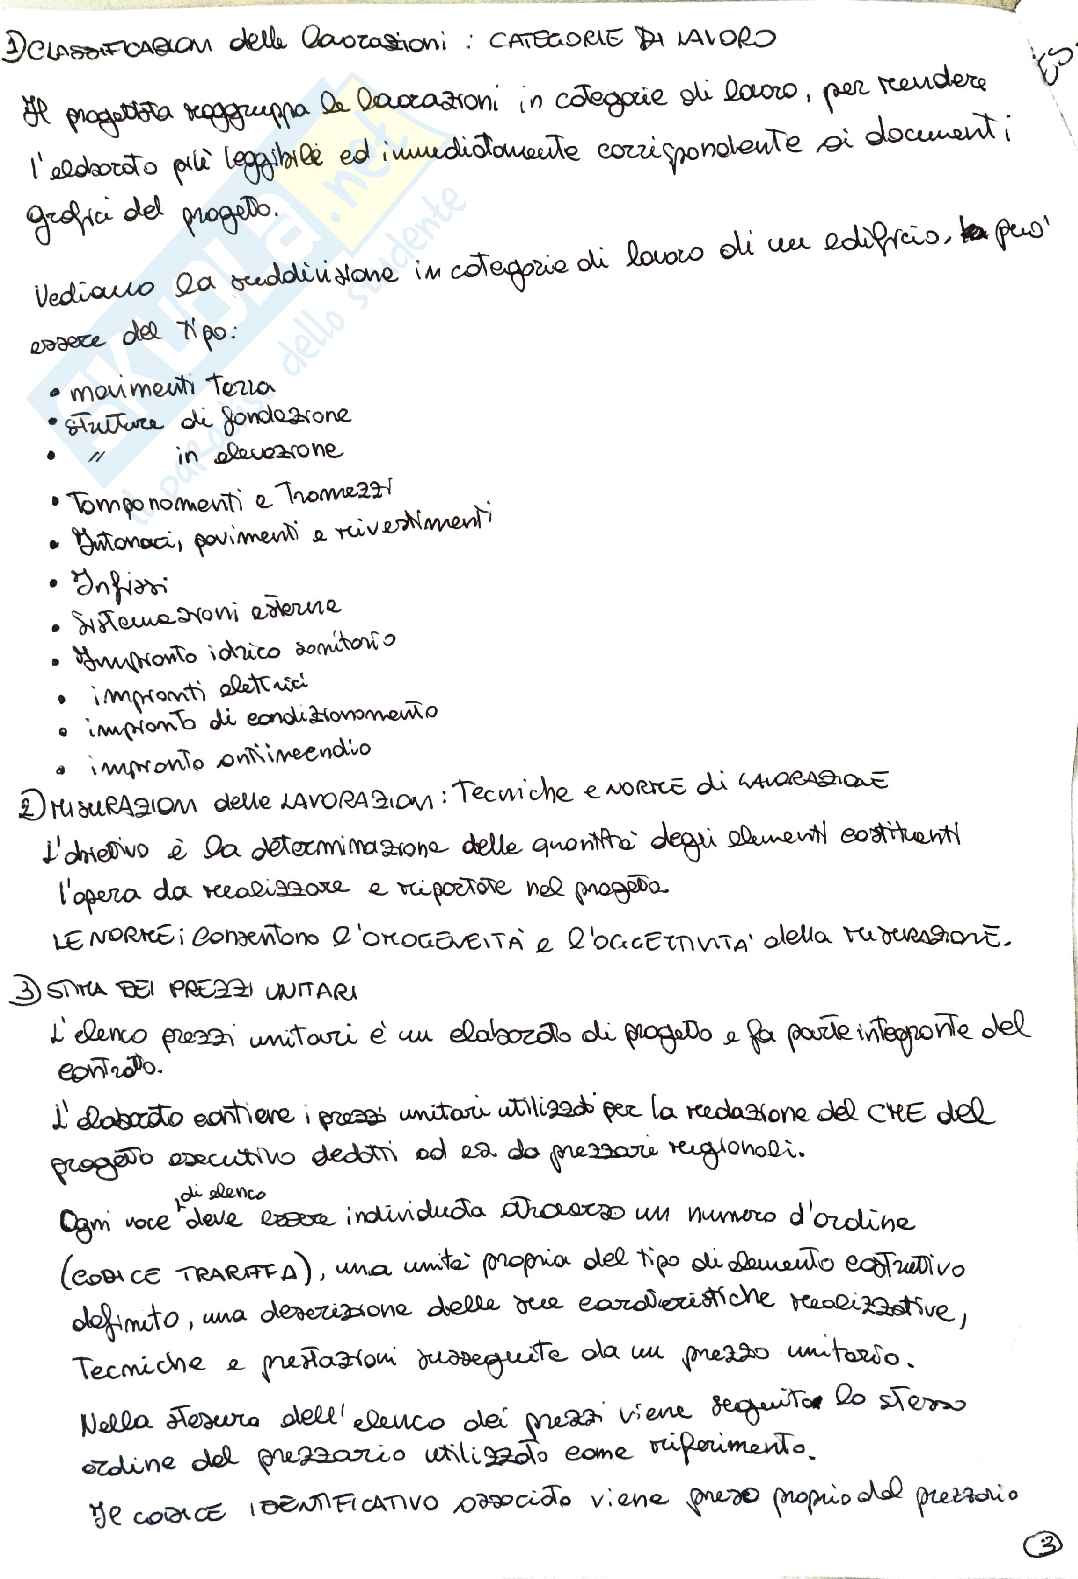 1) CLASSIFICAZIONI delle lavorazioni : CATEGORIE DI LAVORO
ES.
Il progettista raggruppa le lavorazioni in categorie di lavoro, per rendere
l'elaborato più leggibile ed immediatamente corrispondente ai documenti
grafici del progetto.
Vediamo la suddivisione in categorie di lavoro di un edificio, può
essere del tipo:
• movimenti terra
• strutture di fondazione
• " in elevazione
• Tamponamenti e Tramezzi
• Intonaci, pavimenti e rivestimenti
• Infissi
• Sistemazioni esterne
• Impianto idrico sanitario
• impianti elettrici
• impianto di condizionamento
• impianto antiincendio
2) MISURAZIONI delle LAVORAZIONI: Tecniche e NORME di LAVORAZIONE
L'obiettivo è la determinazione delle quantità degli elementi costituenti
l'opera da realizzare e riportate nel progetto.
LE NORME: Consentono l'OMOGENEITÀ e l'OGGETTIVITÀ della MISURAZIONE.
3) STIMA DEI PREZZI UNITARI
L'elenco prezzi unitari è un elaborato di progetto e fa parte integrante del
contratto.
L'elaborato contiene i prezzi unitari utilizzati per la redazione del CME del
progetto esecutivo dedotti ad es da prezzari regionali.
Ogni voce di elenco deve essere individuata attraverso un numero d'ordine
(CODICE TRARIFFA), una unità propria del tipo di elemento costruttivo
definito, una descrizione delle sue caratteristiche realizzative,
Tecniche e prestazioni susseguite da un prezzo unitario.
Nella stesura dell'elenco dei prezzi viene seguito lo stesso
ordine del prezzario utilizzato come riferimento.
Il CODICE IDENTIFICATIVO associato viene preso proprio dal prezzario
3
SKUOLA.net
il paradiso dello studente